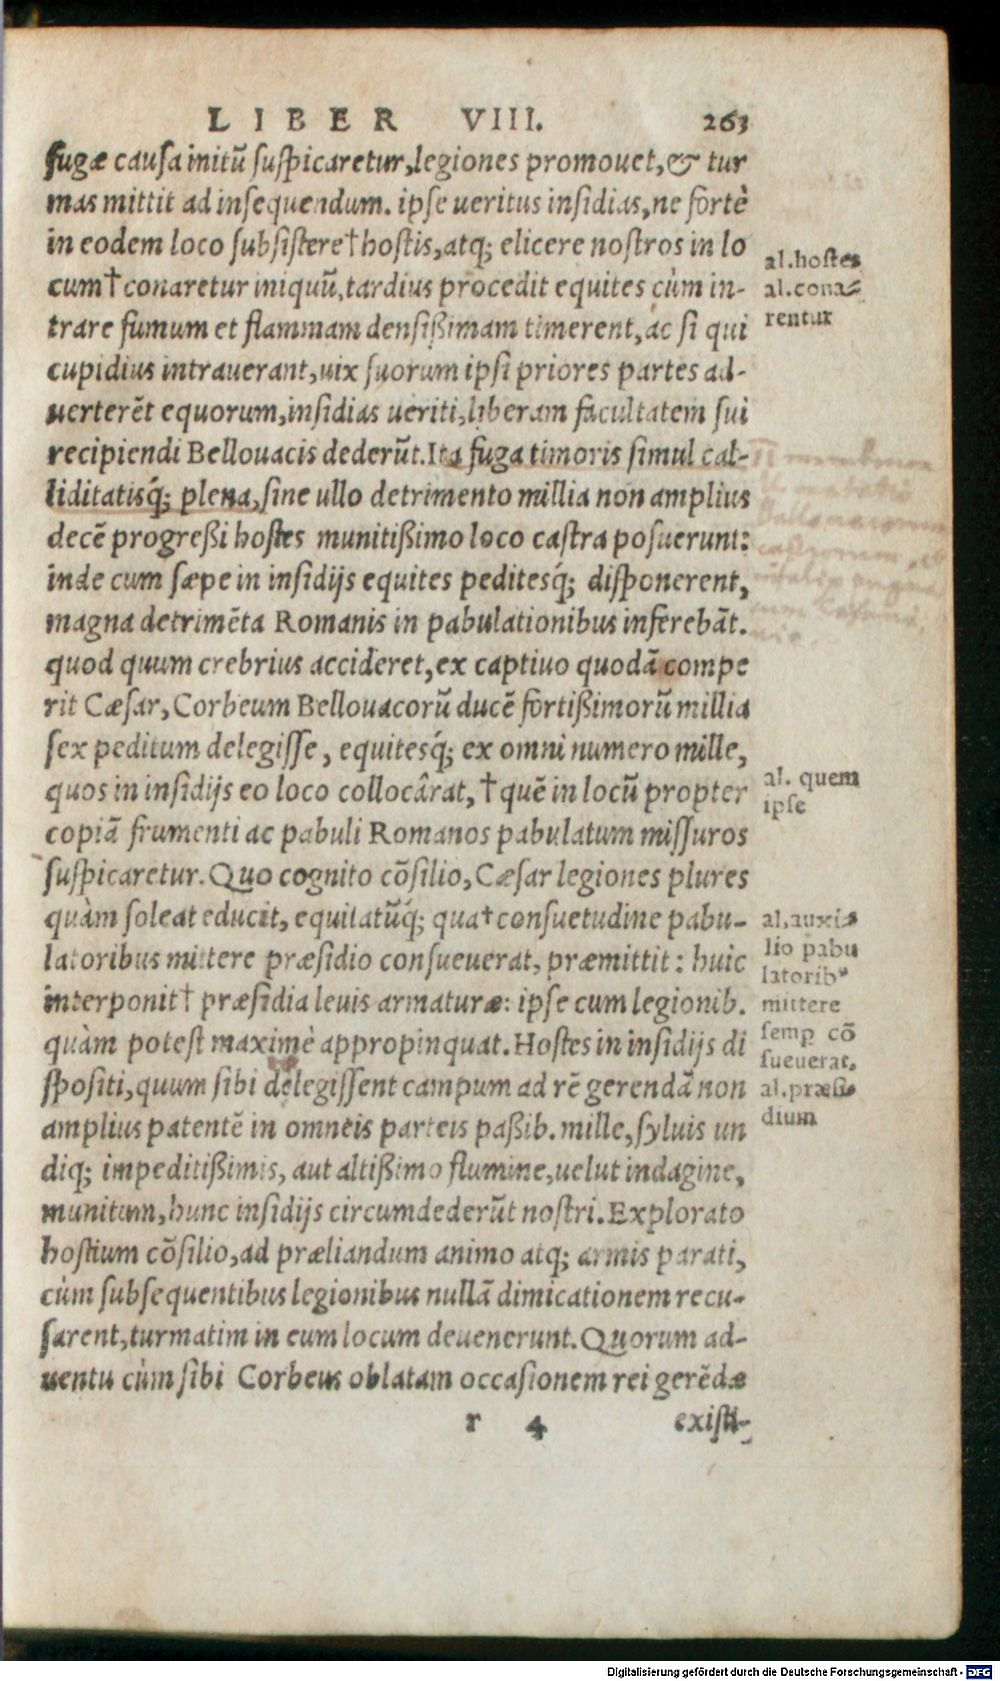 LIBER VIII. 263
fugæ causa initū suspicaretur, legiones promouet, & tur
mas mittit ad insequendum. ipse ueritus insidias, ne fortè
in eodem loco subsistere† hostis, atq; elicere nostros in lo
cum† conaretur iniquū, tardius procedit equites cùm in-
trare fumum et flammam densißimam timerent, ac si qui
cupidius intrauerant, uix suorum ipsi priores partes ad-
uerterēt equorum, insidias ueriti, liberam facultatem sui
recipiendi Bellouacis dederūt. Ita fuga timoris simul cal-
liditatisq́; plena, sine ullo detrimento millia non amplius
decē progreßi hostes munitißimo loco castra posuerunt:
inde cum sæpe in insidijs equites peditesq́; disponerent,
magna detrimēta Romanis in pabulationibus inferebāt.
quod quum crebrius accideret, ex captiuo quodā compe
rit Cæsar, Corbeum Bellouacorū ducē fortißimorū millia
sex peditum delegisse, equitesq́; ex omni numero mille,
quos in insidijs eo loco collocârat, † quē in locū propter
copiā frumenti ac pabuli Romanos pabulatum missuros
suspicaretur. Quo cognito cōsilio, Cæsar legiones plures
quàm soleat educit, equitatūq́; qua† consuetudine pabu-
latoribus mittere præsidio consueuerat, præmittit: huic
interponit† præsidia leuis armaturæ: ipse cum legionib.
quàm potest maximè appropinquat. Hostes in insidijs di
spositi, quum sibi delegissent campum ad rē gerendā non
amplius patentē in omneis parteis paßib. mille, syluis un
diq; impeditißimis, aut altißimo flumine, uelut indagine,
munitum, hunc insidijs circumdederūt nostri. Explorato
hostium cōsilio, ad præliandum animo atq; armis parati,
cùm subsequentibus legionibus nullā dimicationem recu-
sarent, turmatim in eum locum deuenerunt. Quorum ad-
uentu cùm sibi Corbeus oblatam occasionem rei gerēdæ
r 4 existi-
al. hostes
al. cona-
rentur
al. quem
ipse
al. auxi-
lio pabu
latorib⁹
mittere
semp cō
sueuerat.
al. præsi-
dium
Digitalisierung gefördert durch die Deutsche Forschungsgemeinschaft - DFG